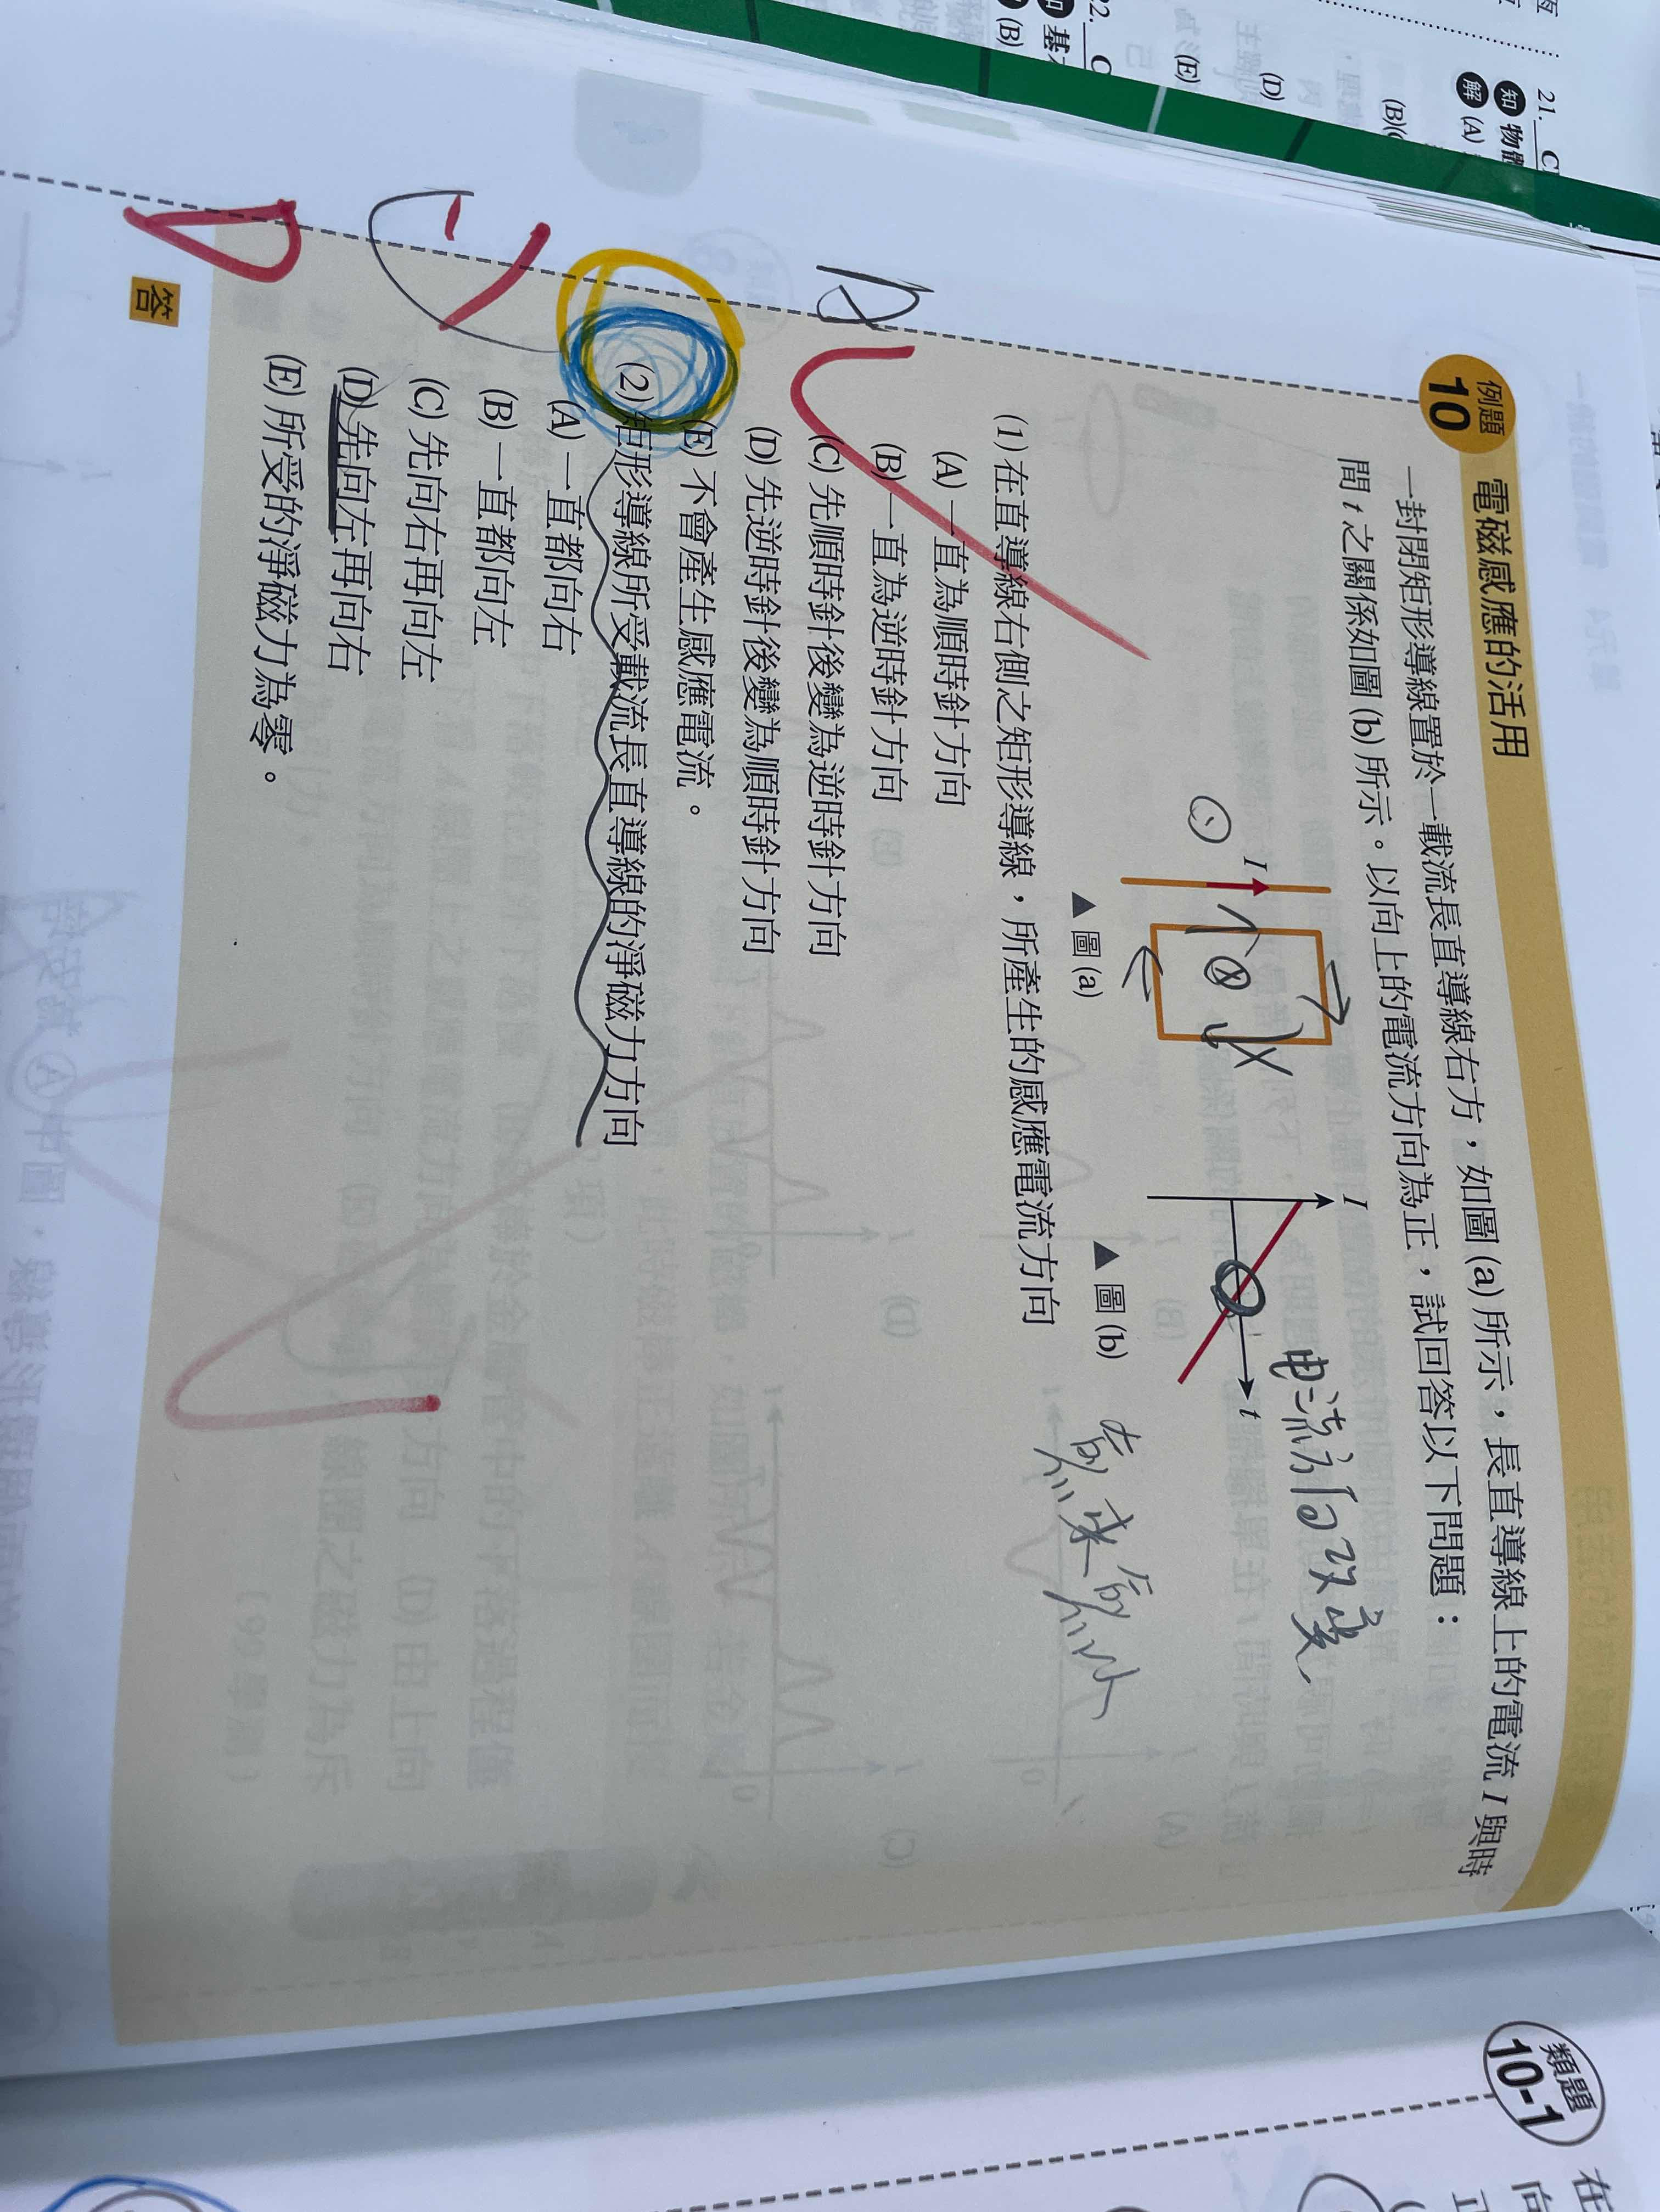 例題
10
電磁感應的活用
一封閉矩形導線置於一載流長直導線右方，如圖(a)所示，長直導線上的電流 I 與時
間 t 之關係如圖(b)所示。以向上的電流方向為正，試回答以下問題：
電流方向改變
I
I
t
▲圖(a)
▲圖(b)
(1) 在直導線右側之矩形導線，所產生的感應電流方向
(A) 一直為順時針方向
(B) 一直為逆時針方向
(C) 先順時針後變為逆時針方向
(D) 先逆時針後變為順時針方向
(E) 不會產生感應電流。
(2) 矩形導線所受載流長直導線的淨磁力方向
(A) 一直都向右
(B) 一直都向左
(C) 先向右再向左
(D) 先向左再向右
(E) 所受的淨磁力為零。
答
類題
10-1
在
向
21. C
知 物
解 (A)
(B)(C
(D)
(E)
22. C
基
(B)